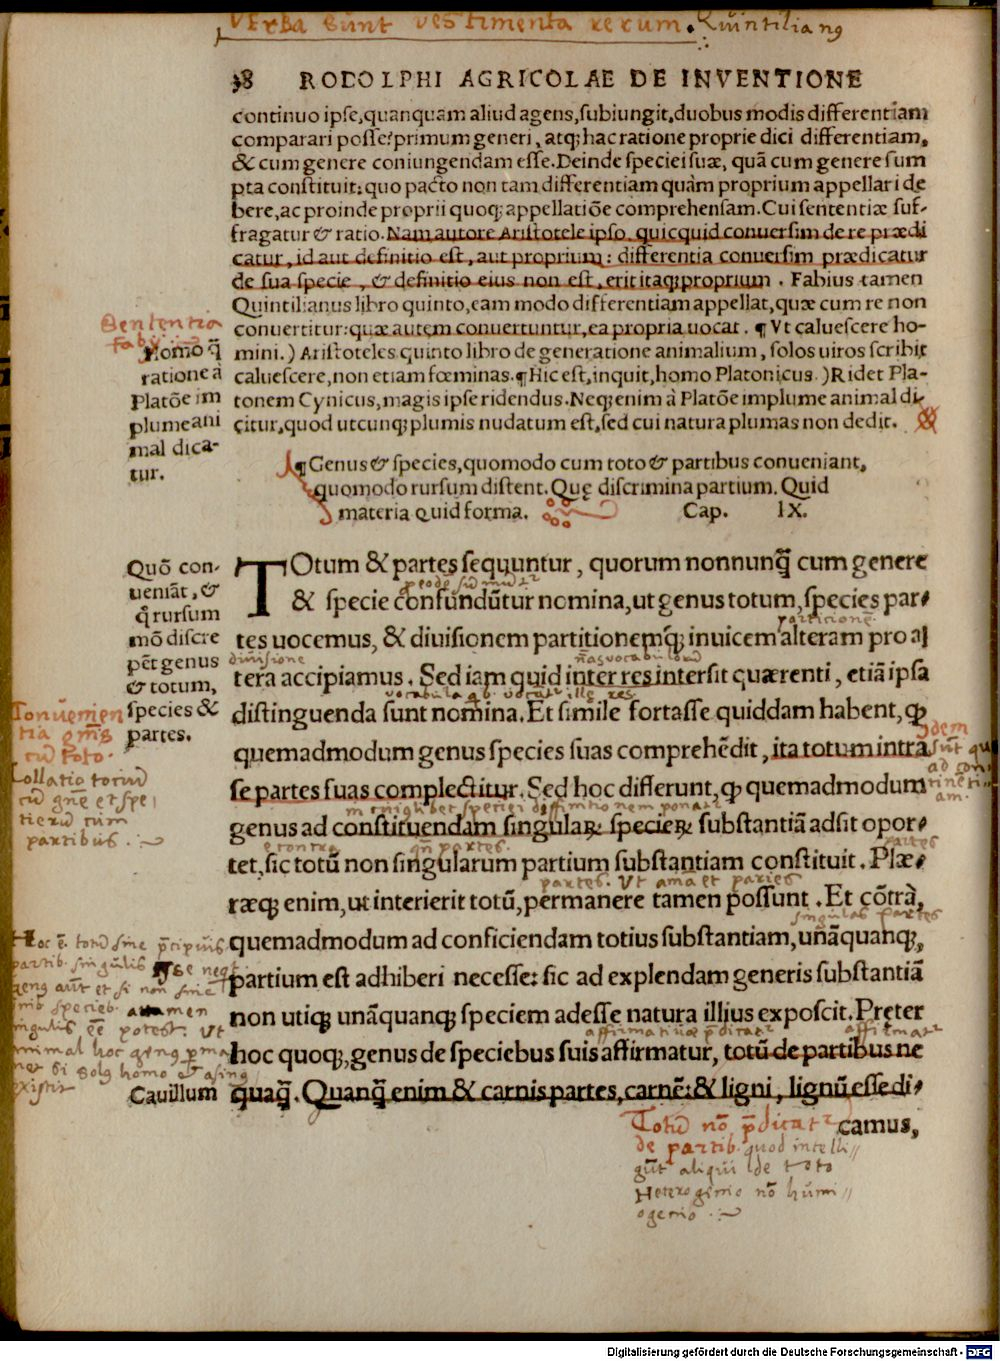 VErba sunt vestimenta rerum. Quintilianꝰ
38 RODOLPHI AGRICOLAE DE INVENTIONE
continuo ipse, quanquam aliud agens, subiungit, duobus modis differentiam
comparari posse: primum generi, atq; hac ratione proprie dici differentiam,
& cum genere coniungendam esse. Deinde speciei suæ, quã cum genere sum
pta constituit: quo pacto non tam differentiam quàm proprium appellari de
bere, ac proinde proprii quoq; appellatiõe comprehensam. Cui sententiæ suf-
fragatur & ratio. Nam autore Aristotele ipso, quicquid conuersim de re prædi
catur, id aut definitio est, aut proprium: differentia conuersim prædicatur
de sua specie, & definitio eius non est, erit itaq; proprium. Fabius tamen
Quintilianus libro quinto, eam modo differentiam appellat, quæ cum re non
conuertitur: quæ autem conuertuntur, ea propria uocat. ¶ Vt caluescere ho-
mini.) Aristoteles quinto libro de generatione animalium, solos uiros scribit
caluescere, non etiam fœminas. ¶ Hic est, inquit, homo Platonicus.) Ridet Pla-
tonem Cynicus, magis ipse ridendus. Neq; enim à Platõe implume animal di-
citur, quod utcunq; plumis nudatum est, sed cui natura plumas non dedit.
Sententia
fabii
Homo q̃
ratione à
Platõe im
plume ani
mal dica-
tur.
¶ Genus & species, quomodo cum toto & partibus conueniant,
quomodo rursum distent. Quę discrimina partium. Quid
materia quid forma. Cap. IX.
Quõ con-
ueniãt, &
q̃ rursum
mõ discre
pẽt genus
& totum,
species &
partes.
TOtum & partes sequuntur, quorum nonnunq̃ cum genere
& specie confundũtur nomina, ut genus totum, species par-
particionẽ
tes uocemus, & diuisionem partitionemq́; inuicem alteram pro al
diuisione
tera accipiamus. Sed iam quid inter res intersit quærenti, etiã ipsa
distinguenda sunt nomina. Et simile fortasse quiddam habent, ꝙ
quemadmodum genus species suas comprehẽdit, ita totum intra
se partes suas complectitur. Sed hoc differunt, ꝙ quemadmodum
genus ad constituendam singularꝝ specierꝝ substantiã adsit opor-
e contra
tet, sic totũ non singularum partium substantiam constituit. Plæ-
partes
partes. Vt ama et paries
ræq; enim, ut interierit totũ, permanere tamen possunt. Et cõtrà,
singulas partes
quemadmodum ad conficiendam totius substantiam, unãquanq;,
partium est adhiberi necesse: sic ad explendam generis substantiã
non utiq; unãquanq; speciem adesse natura illius exposcit. Pręter
hoc quoq;, genus de speciebus suis affirmatur, totũ de partibus ne
quaq̃. Quanq̃ enim & carnis partes, carnẽ: & ligni, lignũ esse di-
camus,
Conuenien
tia gñis
cũ toto.
Collatio totiũ
cũ gñe et spe
tierũ cum
partibus.
Cauillum
Totũ nõ p̃dicatr
de partib. quod intelli
gũt aliqui de toto
Heterogenio nõ humi
ogenio.